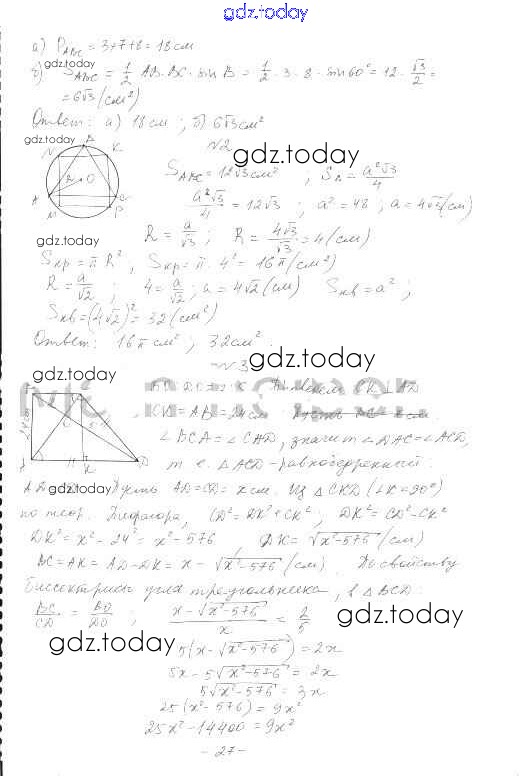 gdz.today
а) P_ABC = 3+7+8 = 18 см
gdz.today
б) S_ABC = 1/2 AB·BC·sin B = 1/2 · 3 · 8 · sin 60° = 12 · √3/2 =
= 6√3 (см²)
Ответ: а) 18 см; б) 6√3 см²
N2
gdz.today
S_ABC = 12√3 см²; S_Δ = a²√3/4
a²√3/4 = 12√3; a² = 48; a = 4√3 (см)
gdz.today
R = a/√3; R = 4√3/√3 = 4 (см)
S_кр = π R², S_кр = π · 4² = 16π (см²)
R = a/√2; 4 = a/√2; a = 4√2 (см) S_кв = a²;
S_кв = (4√2)² = 32 (см²)
Ответ: 16π см²; 32 см².
N3
gdz.today
gdz.today
CK ⊥ AD
CK = AB = 24 см.
∠BCA = ∠CAD, значит ∠DAC = ∠ACD,
т. е. ΔACD - равнобедренный.
gdz.today
Пусть AD = CD = x см. Из ΔCKD (∠K = 90°)
по теор. Пифагора, CD² = DK² + CK²; DK² = CD² - CK²
DK² = x² - 24² = x² - 576 DK = √x²-576 (см)
BC = AK = AD - DK = x - √x²-576 (см). По свойству
биссектрисы угла треугольника, в ΔBCD:
BC/CD = BO/DO; x - √x²-576/x = 2/5
gdz.today
gdz.today
5(x - √x²-576) = 2x
5x - 5√x²-576 = 2x
5√x²-576 = 3x
25(x²-576) = 9x²
25x² - 14400 = 9x²
- 27 -